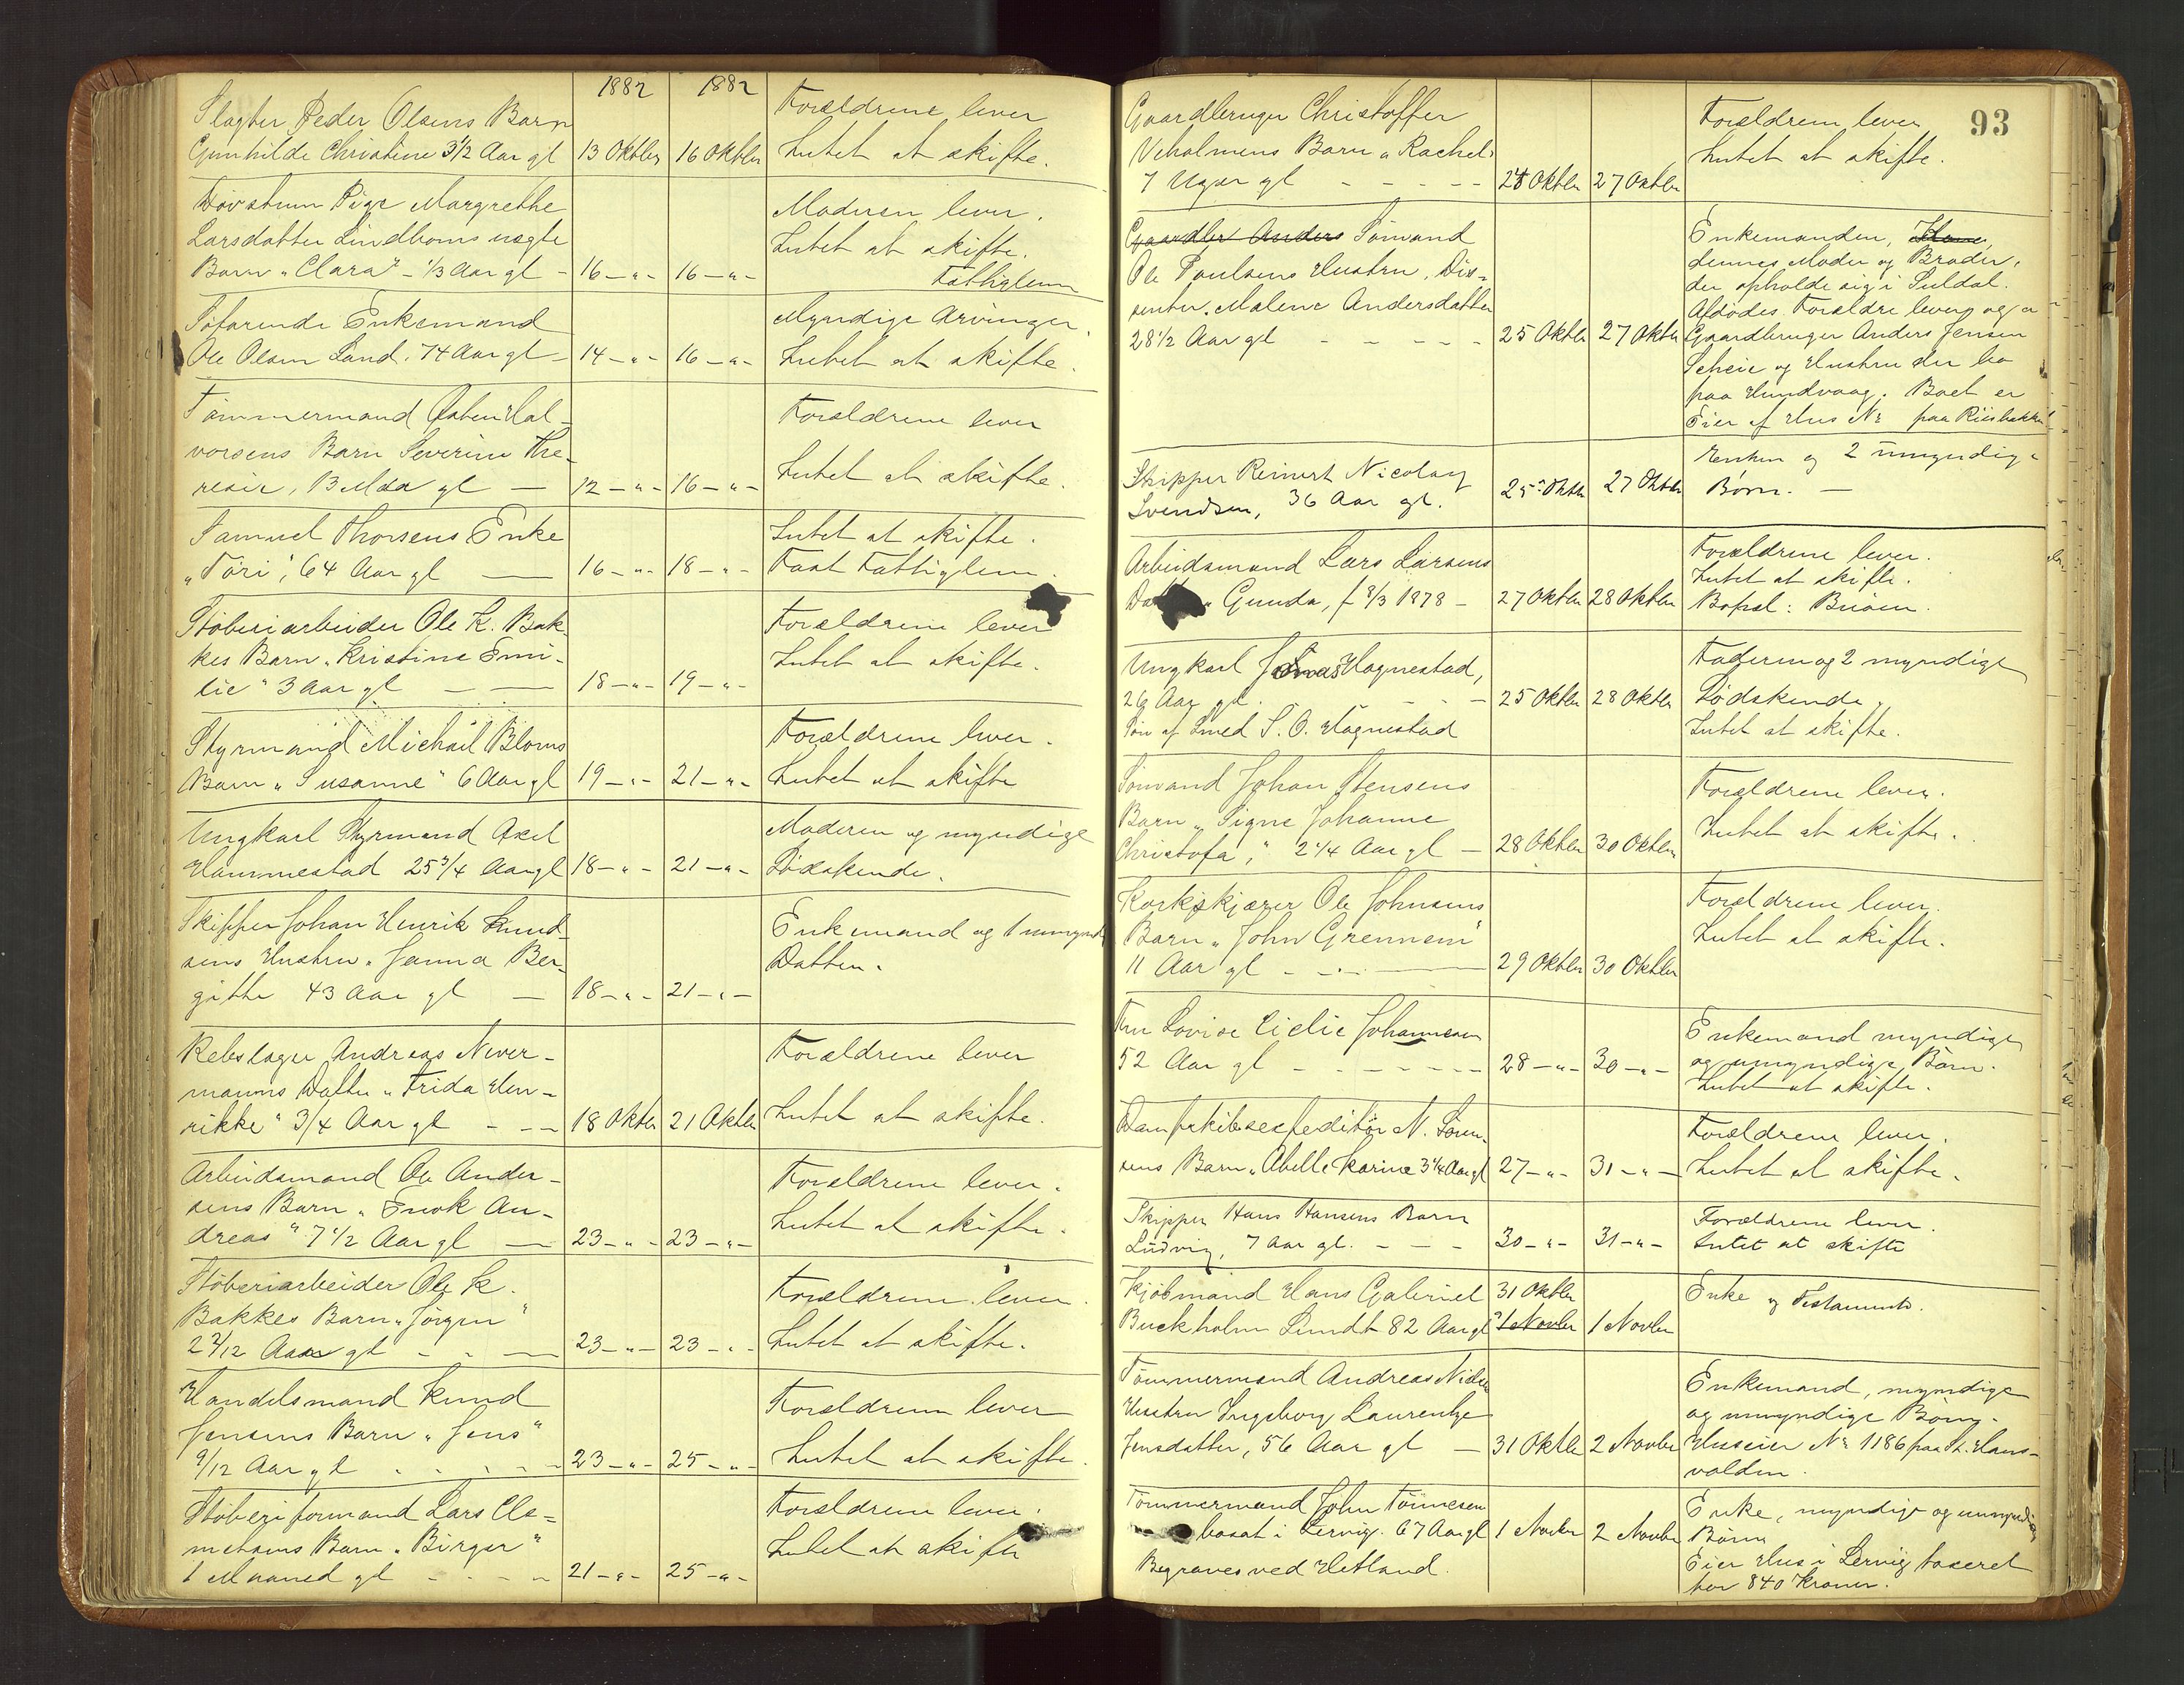 1882 1882
Slagter Peder Olsens Barn Forældrene lever
Gunhilde Christine 3½ Aar gl 13 Oktbr 16 Oktbr Intet at skifte.
Døvstum Pige Margrethe Moderen lever.
Larsdatter Lindboms uægte Intet at skifte.
Barn "Clara" - ⅓ Aar gl - 16 - " - 16 - " - Fattiglem
Søfarende Enkemand Myndige Arvinger.
Ole Olsen Sand. 74 Aar gl - 14 - " - 16 - " - Intet at skifte.
Tømmermand Hal- Forældrene lever
vorsens Barn Severine The-
resie, 13 Mdr gl — 12 - " - 16 - " - Intet at skifte.
Samuel Thorsens Enke Intet at skifte.
"Tøri", 64 Aar gl — 16 - " - 18 - " - Fast Fattiglem.
Støberiarbeider Ole K. Bak- Forældrene lever
kes Barn "Kristine Emi- Intet at skifte.
lie" 3 Aar gl — 18 - " - 19 - " -
Styrmand Michail Bloms Forældrene lever.
Barn "Susanne" 6 Aar gl 19 - " - 21 - " - Intet at skifte
Ungkarl Styrmand Axel Moderen og myndige
Hammestad 25¾ Aar gl 18 - " - 21 - " - Sødskende.
Skipper Johan Henrik Knud- Enkemand og 1 umynd
sens Hustru "Janna Ber- Datter.
gitte 43 Aar gl — 18 - " - 21 - " -
Rebslager Andreas Never- Forældrene lever
manns Datter "Frida Hen-
rikke" ¾ Aar gl - - - 18 Oktbr 21 Oktbr Intet at skifte.
Arbeidsmand Ole Ander- Forældrene lever.
sens Barn "Enok An-
dreas" 7½ Aar gl — 23 - " - 23 - " - Intet at skifte.
Støberiarbeider Ole K. Forældrene lever.
Bakkes Barn "Jørgen"
2 2/12 Aar gl - - — 23 - " - 23 - " - Intet at skifte.
Handelsmand Knud Forældrene lever
Jensens Barn "Jens"
9/12 Aar gl - - - - 23 - " - 25 - " - Intet at skifte.
Støberiformand Lars Cle- Forældrene lever.
metsens Barn "Birger" Intet at skifte
1 Maaned gl - - - - 21 - " - 25 - " -
93
Gaardbruger Christoffer Forældrene lever
Veholmens Barn "Rachel" Intet at skifte.
7 Uger gl - - - - 24 Oktbr 27 Oktbr
Gaardbr Anders Sømand Enkemanden,
Ole Poulsens Hustru, Dis- dennes Moder og Broder,
senter, Malene Andersdatter der opholde sig i Suldal.
28½ Aar gl - - - - - 25 Oktbr 27 Oktbr Afdødes Forældre lever og er
Gaardbruger Anders Jensen
Scheie og Hustru der bo
paa Hundvaag. Boet er
Eier af Hus No paa Riisbakken
Skipper Reinert Nicolay Enken og 2 umyndige
Svendsen, 36 Aar gl. 25 Oktbr 27 Oktbr Børn. —
Arbeidsmand Lars Larsens Forældrene lever.
Intet at skifte.
"Gunda, f 8/3 1878 - 27 Oktbr 28 Oktbr Bopæl: Buøen.
Ungkarl Jonas Hognestad, Faderen og 2 myndige
26 Aar gl. - - - 25 Oktbr 28 Oktbr Sødskende.
Søn af Smed S. O. Hognestad Intet at skifte.
Sømand Johan Stensens Forældrene lever.
Barn "Signe Johanne
Christofa," 2¼ Aar gl — 28 Oktbr 30 Oktbr Intet at skifte.
Korkskjærer Ole Johnsens Forældrene lever.
Barn "John Grennem" Intet at skifte.
11 Aar gl - - - — 29 Oktbr 30 Oktbr
Fru Lovise Johannesen Enkemand myndige
52 Aar gl - - - - - - - 28 - " - 30 - " - og umyndige Børn.
Intet at skifte.
Dampskibsexpeditør N. Søren- Forældrene lever.
sens Barn "Abelle Karine 3¼ Aar gl 27 - " - 31 - " - Intet at skifte.
Skipper Hans Hansens Barn Forældrene lever.
Ludvig, 7 Aar gl. - - - 30 - " - 31 - " - Intet at skifte
Kjøbmand Hans Gabriel 31 Oktbr Enke og Testamente.
Buckholm Sundt 82 Aar gl 31 Novbr 1 Novbr
Tømmermand Andreas Nielsen Enkemand, myndige
Hustru Ingeborg Laurentze og umyndige Børn.
Jensdatter, 56 Aar gl — 31 Oktbr 2 Novbr Huseier No 1186 paa St. Hans-
volden.
Tømmermand John Tønnesen Enke, myndige og umyndige
bosat i Lervig. 67 Aar gl 1 Novbr 2 Novbr Børn
Begraves ved Hetland. Eier Hus i Lervig taxeret
for 840 Kroner.